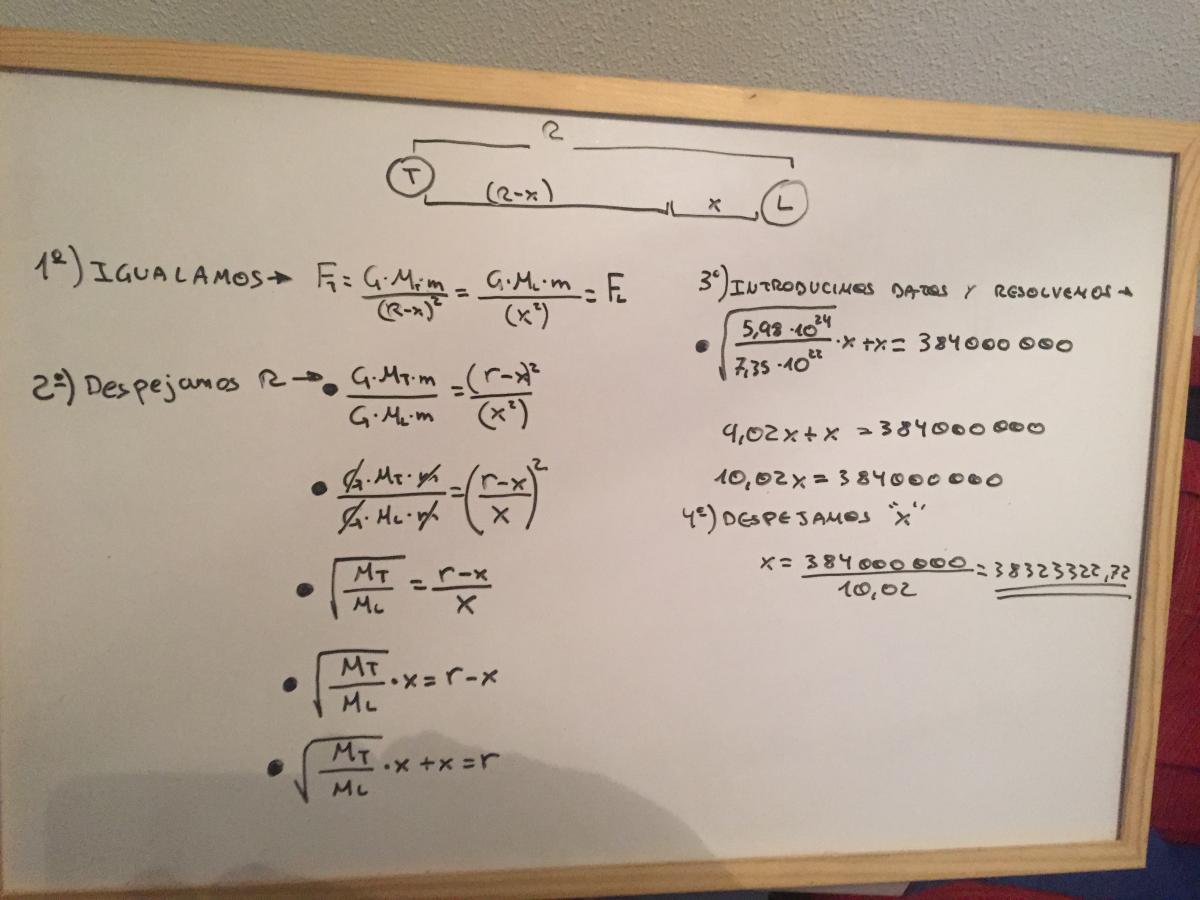 R
T (R-x) x L
1º) IGUALAMOS → F_T = G·M_T·m / (R-x)² = G·M_L·m / (x²) = F_L
2º) Despejamos R → • G·M_T·m / G·M_L·m = (r-x)² / (x²)
• G·M_T·m / G·M_L·m = (r-x / x)²
• √(M_T / M_L) = r-x / x
• √(M_T / M_L) · x = r-x
• √(M_T / M_L) · x + x = r
3º) INTRODUCIMOS DATOS Y RESOLVEMOS →
• √(5,98·10²⁴ / 7,35·10²²) · x + x = 384000 000
9,02x + x = 384000 000
10,02x = 384000 000
4º) DESPEJAMOS "x"
x = 384 000 000 / 10,02 = 38323322,72